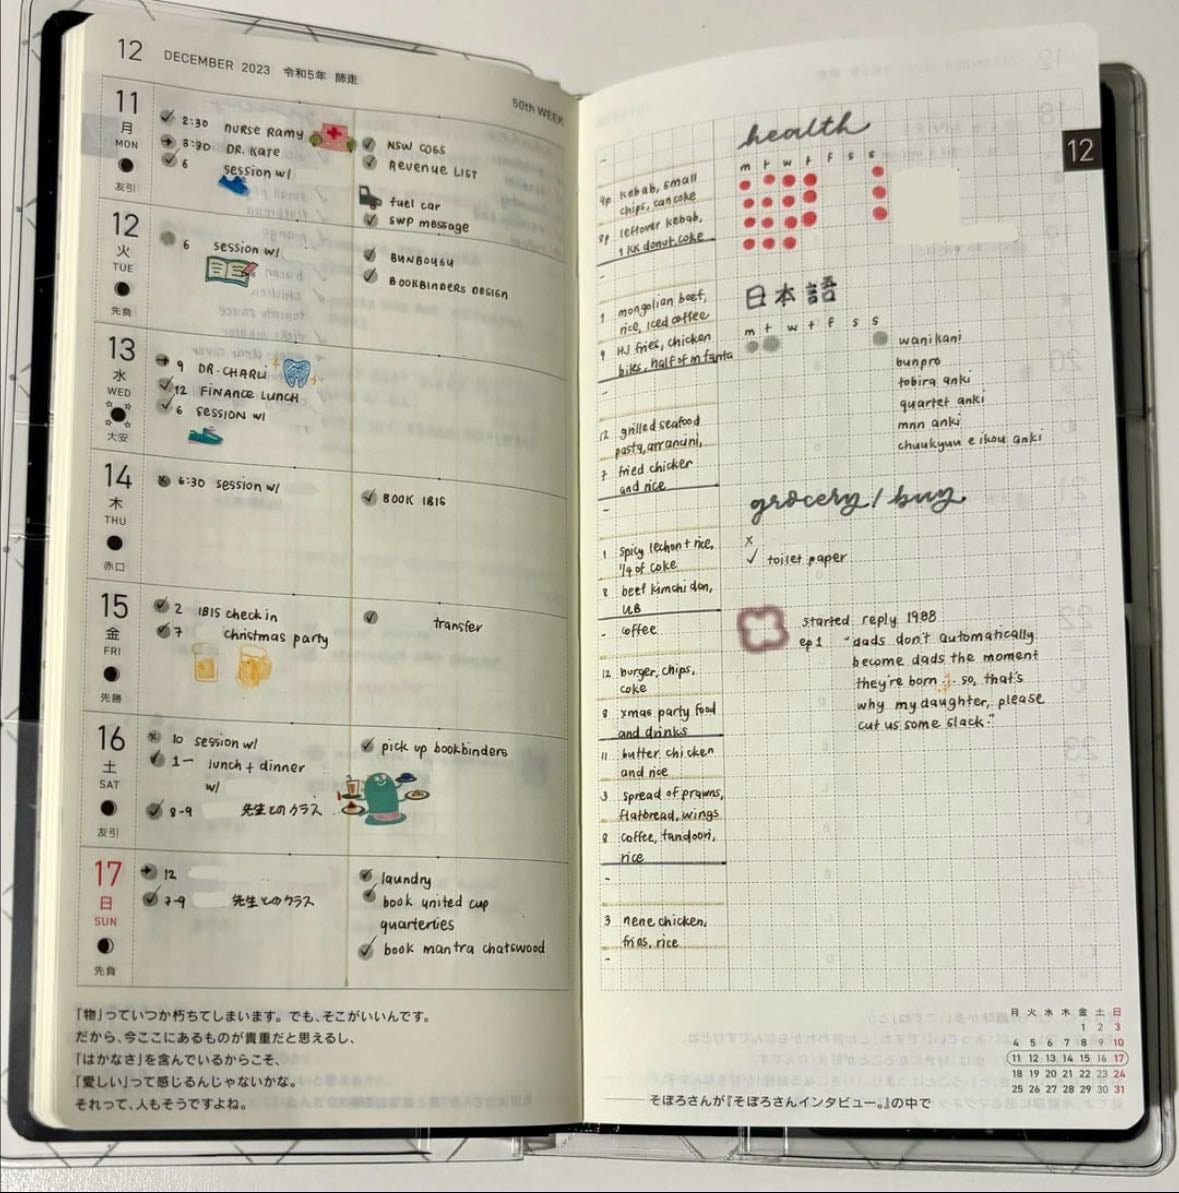 12 DECEMBER 2023 令和5年 師走
50th WEEK
11
月
MON
友引
2:30 nurse Ramy
3:30 DR. Kate
6 session w/
NSW COGS
Revenue List
fuel car
SWP message
12
火
TUE
先負
6 session w/
BUNBOUGU
BOOKBINDERS DESIGN
13
水
WED
大安
9 DR. CHARLI
12 FINANCE LUNCH
6 session w/
14
木
THU
赤口
6:30 session w/
BOOK IBIS
15
金
FRI
先勝
2 IBIS check in
7 christmas party
transfer
16
土
SAT
友引
10 session w/
1- lunch + dinner
w/
8-9 先生とのクラス
pick up bookbinders
17
日
SUN
先負
12
7-9 先生とのクラス
laundry
book united cup
quarterties
book mantra chatswood
「物」っていつか朽ちてしまいます。でも、そこがいいんです。
だから、今ここにあるものが貴重だと思えるし、
「はかなさ」を含んでいるからこそ、
「愛しい」って感じるんじゃないかな。
それって、人もそうですよね。
-
4p kebab, small
chips, can coke
8p leftover kebab,
1 KK donut, coke
-
1 mongolian beef,
rice, iced coffee
9 HJ fries, chicken
bites, half of m fanta
-
12 grilled seafood
pasta, arrancini,
7 fried chicken
and rice
-
1 spicy lechon + rice,
1/4 of coke
8 beef kimchi don,
- coffee
12 burger, chips,
coke
8 xmas party food
and drinks
11 butter chicken
and rice
3 spread of prawns,
flatbread, wings
8 coffee, tandoori,
rice
-
3 nene chicken,
fries, rice
-
health
m t w t f s s
日本語
m t w t f s s
wanikani
bunpro
tobira anki
quartet anki
mnn anki
chuukyuu e ikou anki
grocery / buy
x
✓ toilet paper
started reply 1988
ep 1 "dads don't automatically
become dads the moment
they're born... so, that's
why my daughter, please
cut us some slack."
12
月 火 水 木 金 土 日
1 2 3
4 5 6 7 8 9 10
11 12 13 14 15 16 17
18 19 20 21 22 23 24
25 26 27 28 29 30 31
——— そぼろさんが『そぼろさんインタビュー。』の中で